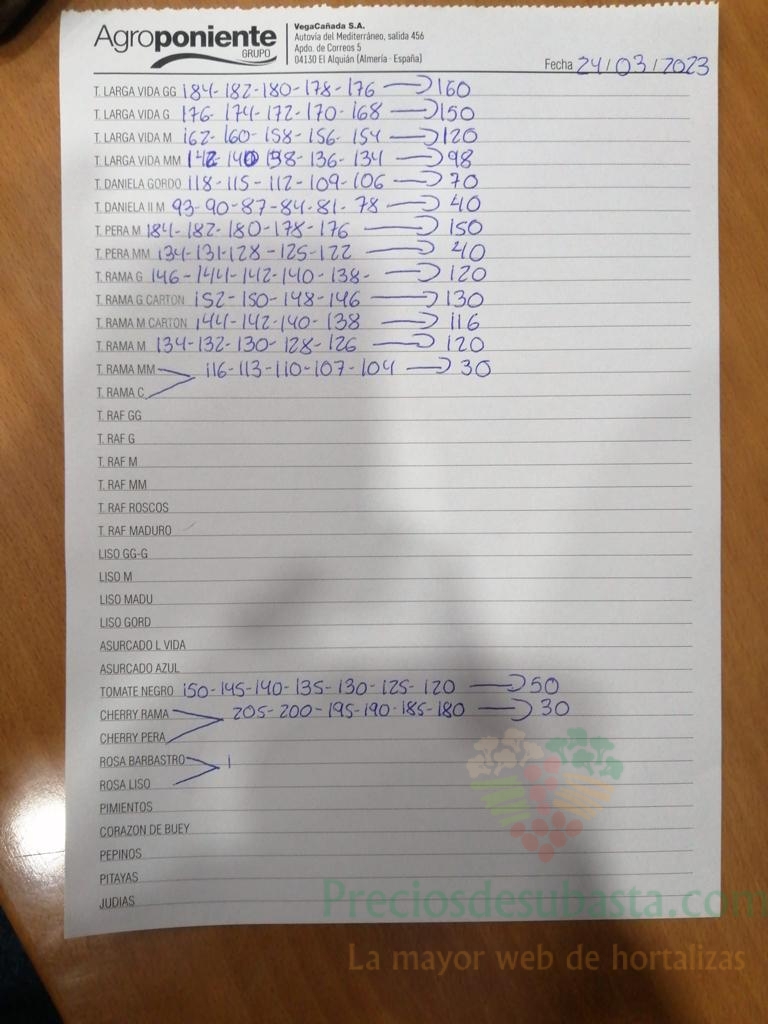 Agroponiente
GRUPO
VegaCañada S.A.
Autovía del Mediterráneo, salida 456
Apdo. de Correos 5
04130 El Alquián (Almería - España)
Fecha 24/03/2023
T. LARGA VIDA GG 184-182-180-178-176 → 160
T. LARGA VIDA G 176-174-172-170-168 → 150
T. LARGA VIDA M 162-160-158-156-154 → 120
T. LARGA VIDA MM 142-140 138-136-134 → 98
T. DANIELA GORDO 118-115-112-109-106 → 70
T. DANIELA II M 93-90-87-84-81-78 → 40
T. PERA M 184-182-180-178-176 → 150
T. PERA MM 134-131-128-125-122 → 40
T. RAMA G 146-144-142-140-138- → 120
T. RAMA G CARTON 152-150-148-146 → 130
T. RAMA M CARTON 144-142-140-138 → 116
T. RAMA M 134-132-130-128-126 → 120
T. RAMA MM 116-113-110-107-104 → 30
T. RAMA C
T. RAF GG
T. RAF G
T. RAF M
T. RAF MM
T. RAF ROSCOS
T. RAF MADURO
LISO GG-G
LISO M
LISO MADU
LISO GORD
ASURCADO L VIDA
ASURCADO AZUL
TOMATE NEGRO 150-145-140-135-130-125-120 → 50
CHERRY RAMA 205-200-195-190-185-180 → 30
CHERRY PERA
ROSA BARBASTRO
ROSA LISO
PIMIENTOS
CORAZON DE BUEY
PEPINOS
PITAYAS
JUDIAS
Preciosdesubasta.com
La mayor web de hortalizas